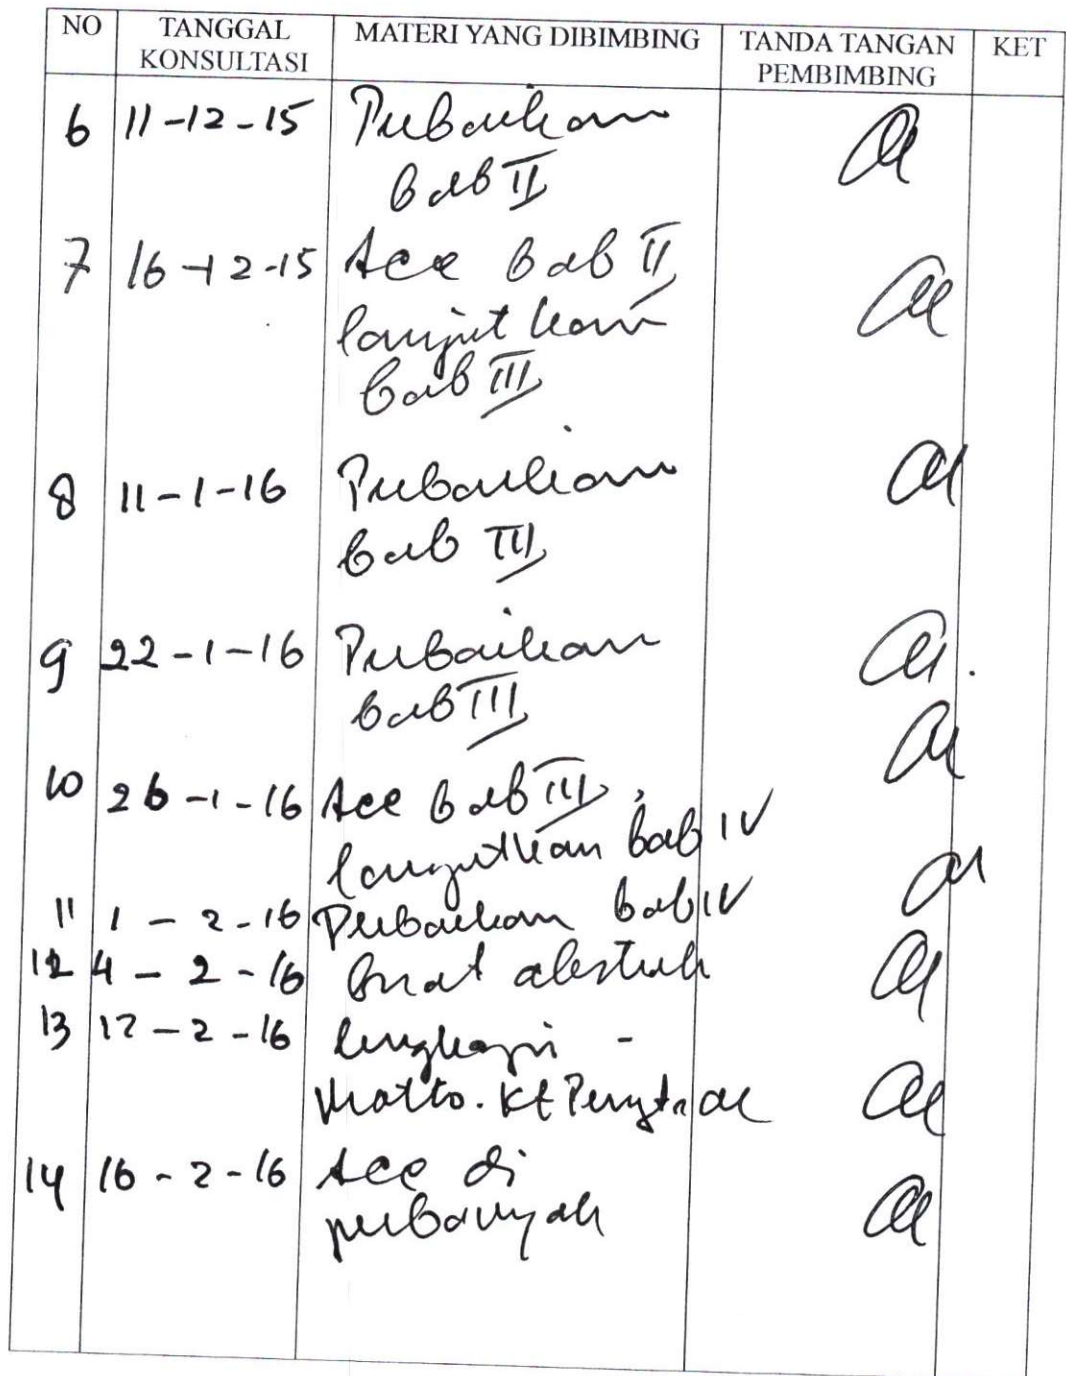 NO TANGGAL KONSULTASI MATERI YANG DIBIMBING TANDA TANGAN PEMBIMBING KET
6 11-12-15 Perbaikan
bab II
7 16-12-15 Acc bab II
lanjutkan
bab III
8 11-1-16 Perbaikan
bab III
9 22-1-16 Perbaikan
bab III
10 26-1-16 Acc bab III,
lanjutkan bab IV
11 1-2-16 Perbaikan bab IV
12 4-2-16 buat abstrak
13 12-2-16 lengkapi -
Motto. Kt
14 16-2-16 Acc di
perbanyak